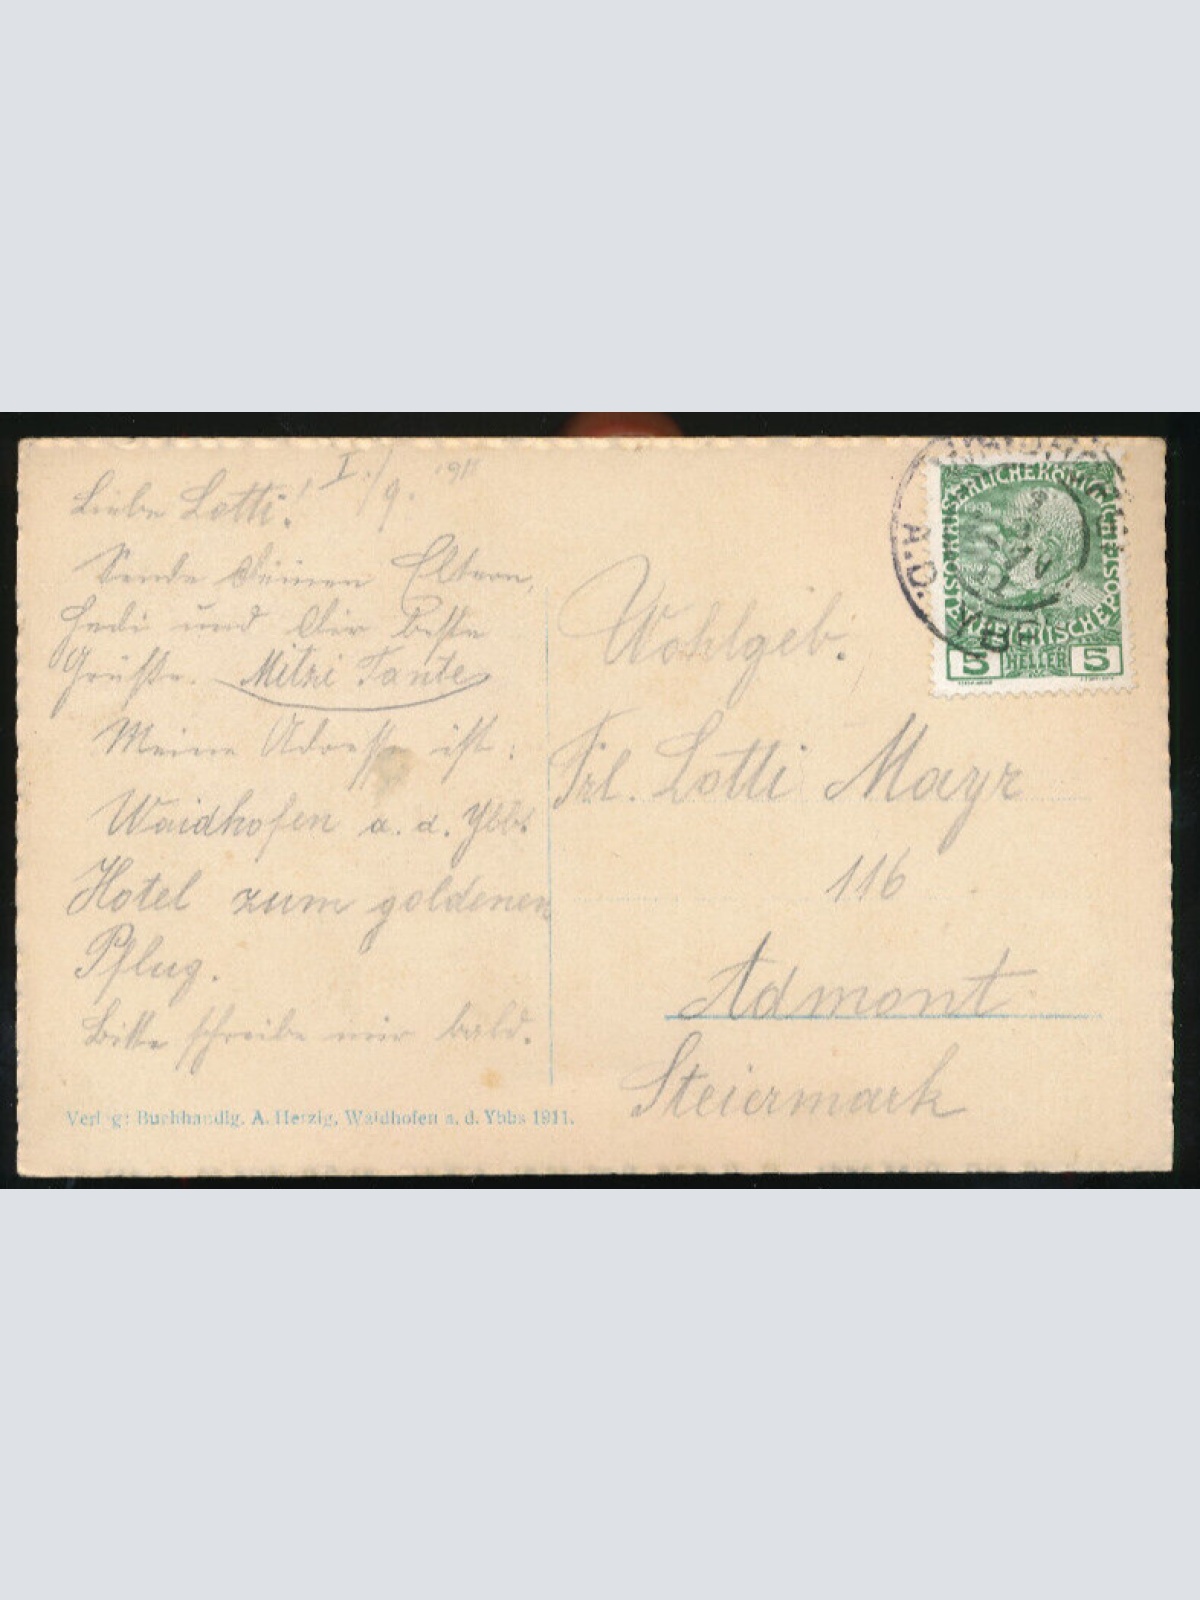 I./9. 1911
Liebe Lotti!
Sende Deinen Eltern,
Hedi und Dir beste
Grüße. Mitzi Tante
Meine Adresse ist:
Waidhofen a. d. Ybbs
Hotel zum goldenen
Pflug.
Bitte schreibe mir bald.
Verlag: Buchhandlg. A. Herzig, Waidhofen a. d. Ybbs 1911.
WAIDHOFEN
A.D. YBBS
KAISERLICHE KÖNIGLICHE
ÖSTERREICHISCHE POST
5 HELLER 5
Wohlgeb.
Frl. Lotti Mayr
116
Admont
Steiermark